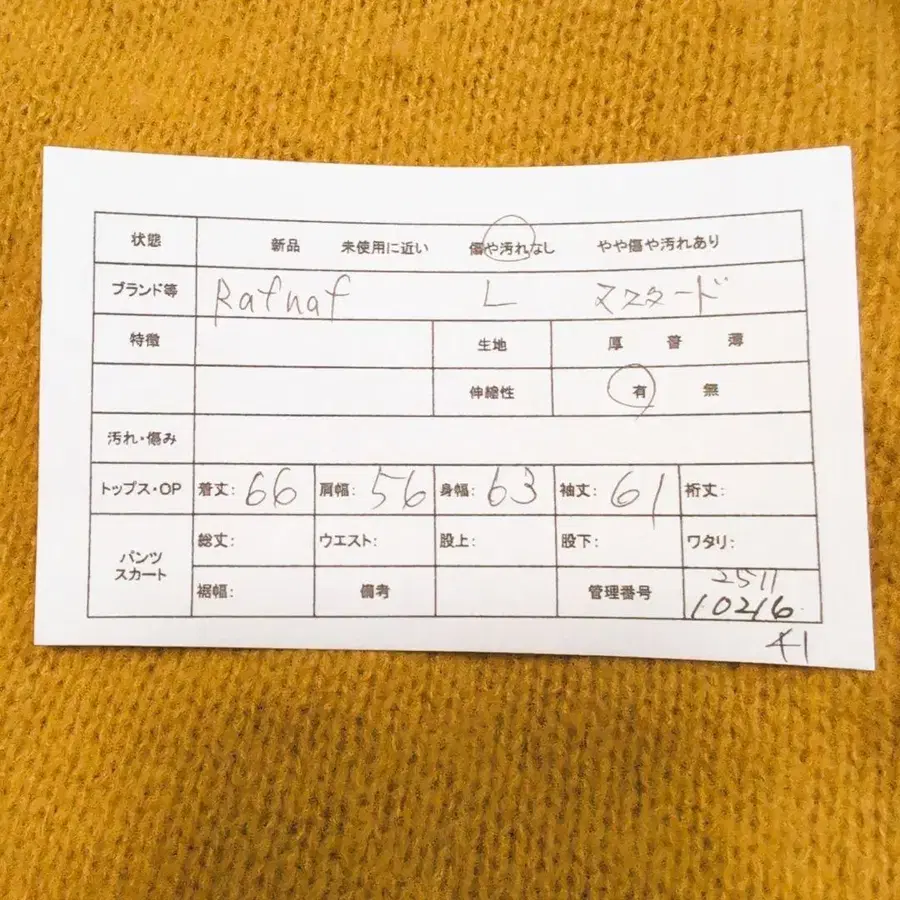 状態 新品 未使用に近い 傷や汚れなし やや傷や汚れあり
ブランド等 Rafnaf L マスタード
特徴 生地 厚 普 薄
伸縮性 有 無
汚れ・傷み
トップス・OP 着丈: 66 肩幅: 56 身幅: 63 袖丈: 61 裄丈:
パンツ スカート 総丈: ウエスト: 股上: 股下: ワタリ:
裾幅: 備考 管理番号 2511
10216
41